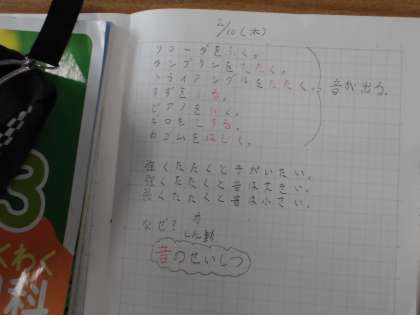 2/10(木)
リコーダをふく。
タンブリンをたたく。
トライアングルをたたく。
すずをふる。
ピアノをひく。
ギロをこする。
わゴムをはじく。
音が出る。
強くたたくと手がいたい。
強くたたくと音は大きい。
弱くたたくと音は小さい。
なぜ?
しん動
音のせいしつ
3
くわく
科